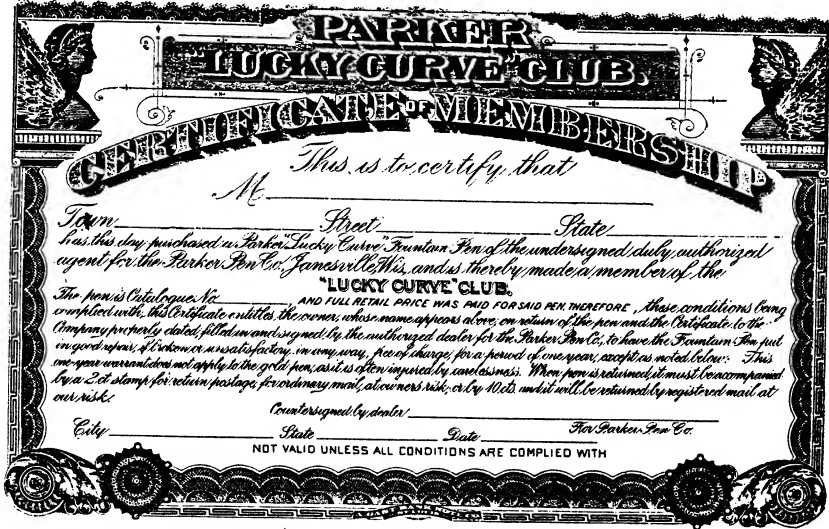 PARKER
"LUCKY CURVE" CLUB.
CERTIFICATE OF MEMBERSHIP
This is to certify that
M
Town Street State
has this day purchased a Parker "Lucky Curve" Fountain Pen of the undersigned duly authorized
agent for the Parker Pen Co. Janesville, Wis, and is thereby made a member of the
"LUCKY CURVE" CLUB.
The pen is Catalogue No. , AND FULL RETAIL PRICE WAS PAID FOR SAID PEN, THEREFORE, these conditions being
complied with, this Certificate entitles the owner, whose name appears above, on return of the pen and the Certificate to the
Company properly dated, filled in and signed by the authorized dealer for the Parker Pen Co., to have the Fountain Pen put
in good repair, if broken or unsatisfactory in any way, free of charge, for a period of one year, except as noted below: This
one year warrant does not apply to the gold pen, as it is often injured by carelessness. When pen is returned, it must be accompanied
by a 2 ct stamp for return postage, for ordinary mail, at owners risk, or by 10 cts. and it will be returned by registered mail at
our risk.
Countersigned by dealer
City State Date For Parker Pen Co.
NOT VALID UNLESS ALL CONDITIONS ARE COMPLIED WITH